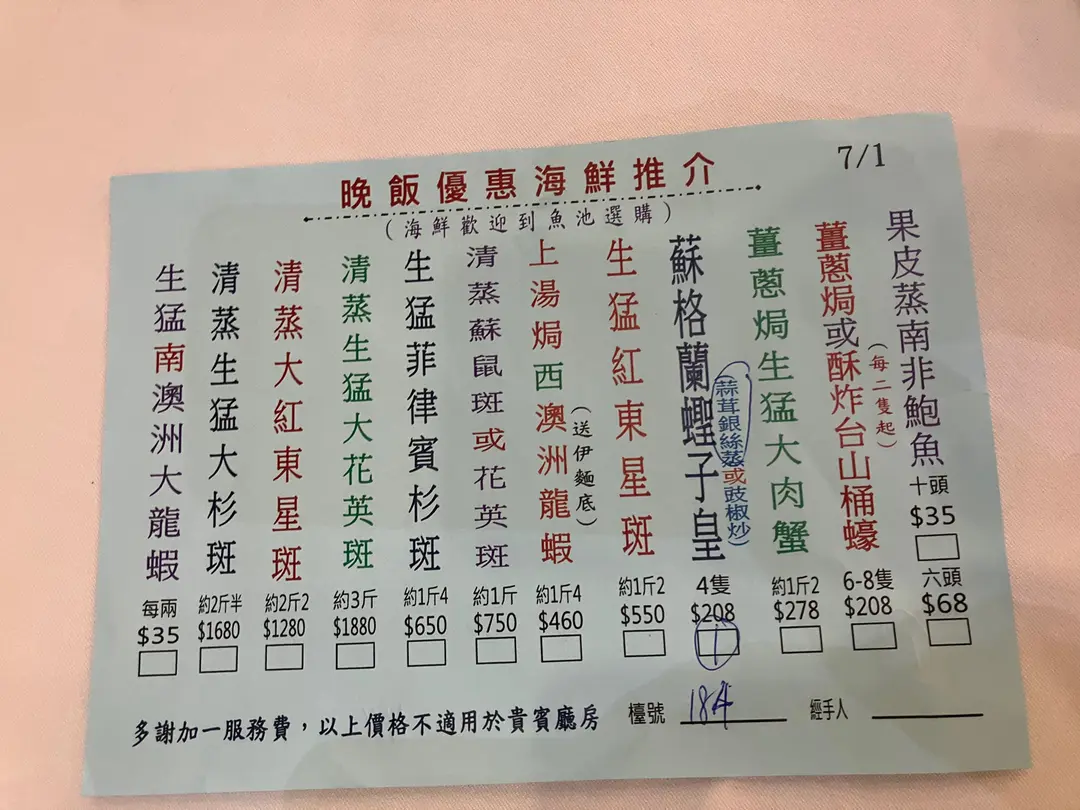 7/1
晚飯優惠海鮮推介
(海鮮歡迎到魚池選購)
果皮蒸南非鮑魚
十頭
$35
六頭
$68
薑蔥焗或酥炸台山桶蠔
(每二隻起)
6-8隻
$208
薑蔥焗生猛大肉蟹
約1斤2
$278
蘇格蘭蟶子皇
(蒜茸銀絲蒸或豉椒炒)
4隻
$208
1
生猛紅東星斑
約1斤2
$550
上湯焗西澳洲龍蝦
(送伊麵底)
約1斤4
$460
清蒸蘇鼠斑或花英斑
約1斤
$750
生猛菲律賓杉斑
約1斤4
$650
清蒸生猛大花英斑
約3斤
$1880
清蒸大紅東星斑
約2斤2
$1280
清蒸生猛大杉斑
約2斤半
$1680
生猛南澳洲大龍蝦
每兩
$35
多謝加一服務費，以上價格不適用於貴賓廳房
檯號 18A
經手人